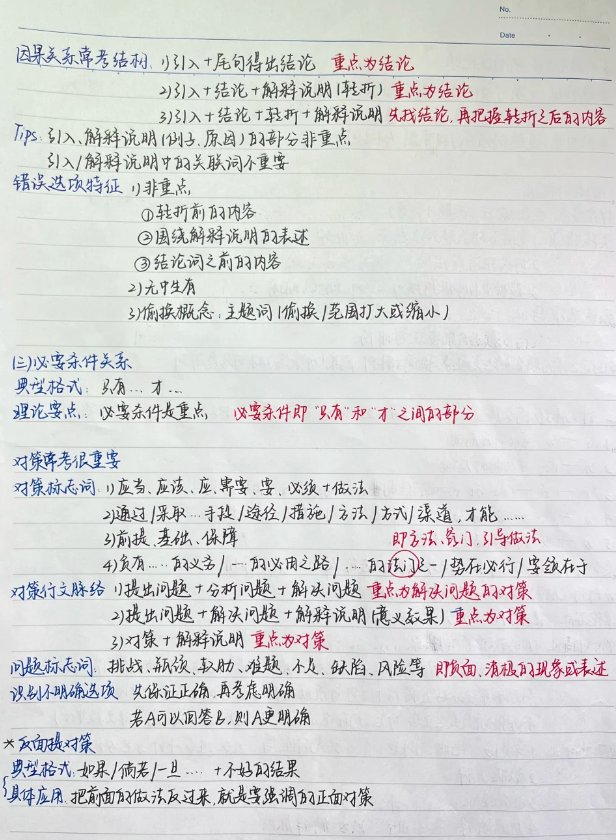 No.
Date
因果关系常考结构 1)引入+尾句得出结论 重点为结论
2)引入+结论+解释说明(转折) 重点为结论
3)引入+结论+转折+解释说明 先找结论,再把握转折之后的内容
Tips: 引入、解释说明(例子、原因)的部分非重点
引入/解释说明中的关联词不重要
错误选项特征 1)非重点
①转折前的内容
②围绕解释说明的表述
③结论词之前的内容
2)无中生有
3)偷换概念:主题词(偷换/范围扩大或缩小)
(三)必要条件关系
典型格式: 只有…才…
理论要点: 必要条件是重点 必要条件即"只有"和"才"之间的部分
对策常考很重要
对策标志词: 1)应当、应该、应、需要、要、必须+做法
2)通过/采取…手段/途径/措施/方法/方式/渠道,才能……
3)前提、基础、保障 即方法、窍门,引导做法
4)负有……的义务/…的必由之路/…的法门之一/势在必行/要领在于
对策行文脉络 1)提出问题+分析问题+解决问题 重点为解决问题的对策
2)提出问题+解决问题+解释说明(意义效果) 重点为对策
3)对策+解释说明 重点为对策
问题标志词: 挑战、瓶颈、软肋、难题、不足、缺陷、风险等 即负面、消极的现象或表述
识别不明确选项 先保证正确,再考虑明确
若A可以回答B,则A更明确
*反面提对策
典型格式: 如果/倘若/一旦……+不好的结果
具体应用: 把前面的做法反过来,就是要强调的正面对策